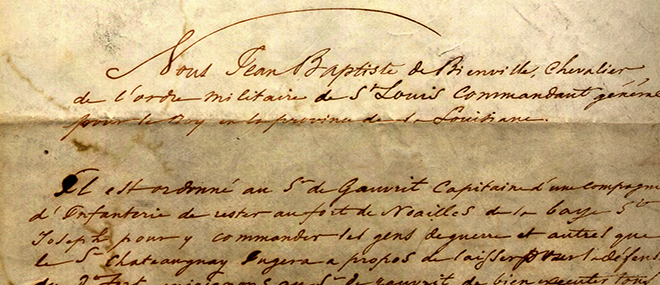 Nous Jean Baptiste de Bienville, Chevalier
de l'ordre militaire de St Louis Commandant général
pour le Roy en la province de la Louisiane.
Il est ordonné au Sr de Gauvrit Capitaine d'une compagnie
d'Infanterie de rester au fort de Noailles de la baye Ste
Joseph pour y commander les gens de guerre et autres que
le Sr Chateaugnay Jugera a propos de laisser pour la défense
du fort, enjoignons au Sr de gauvrit de bien executer tous